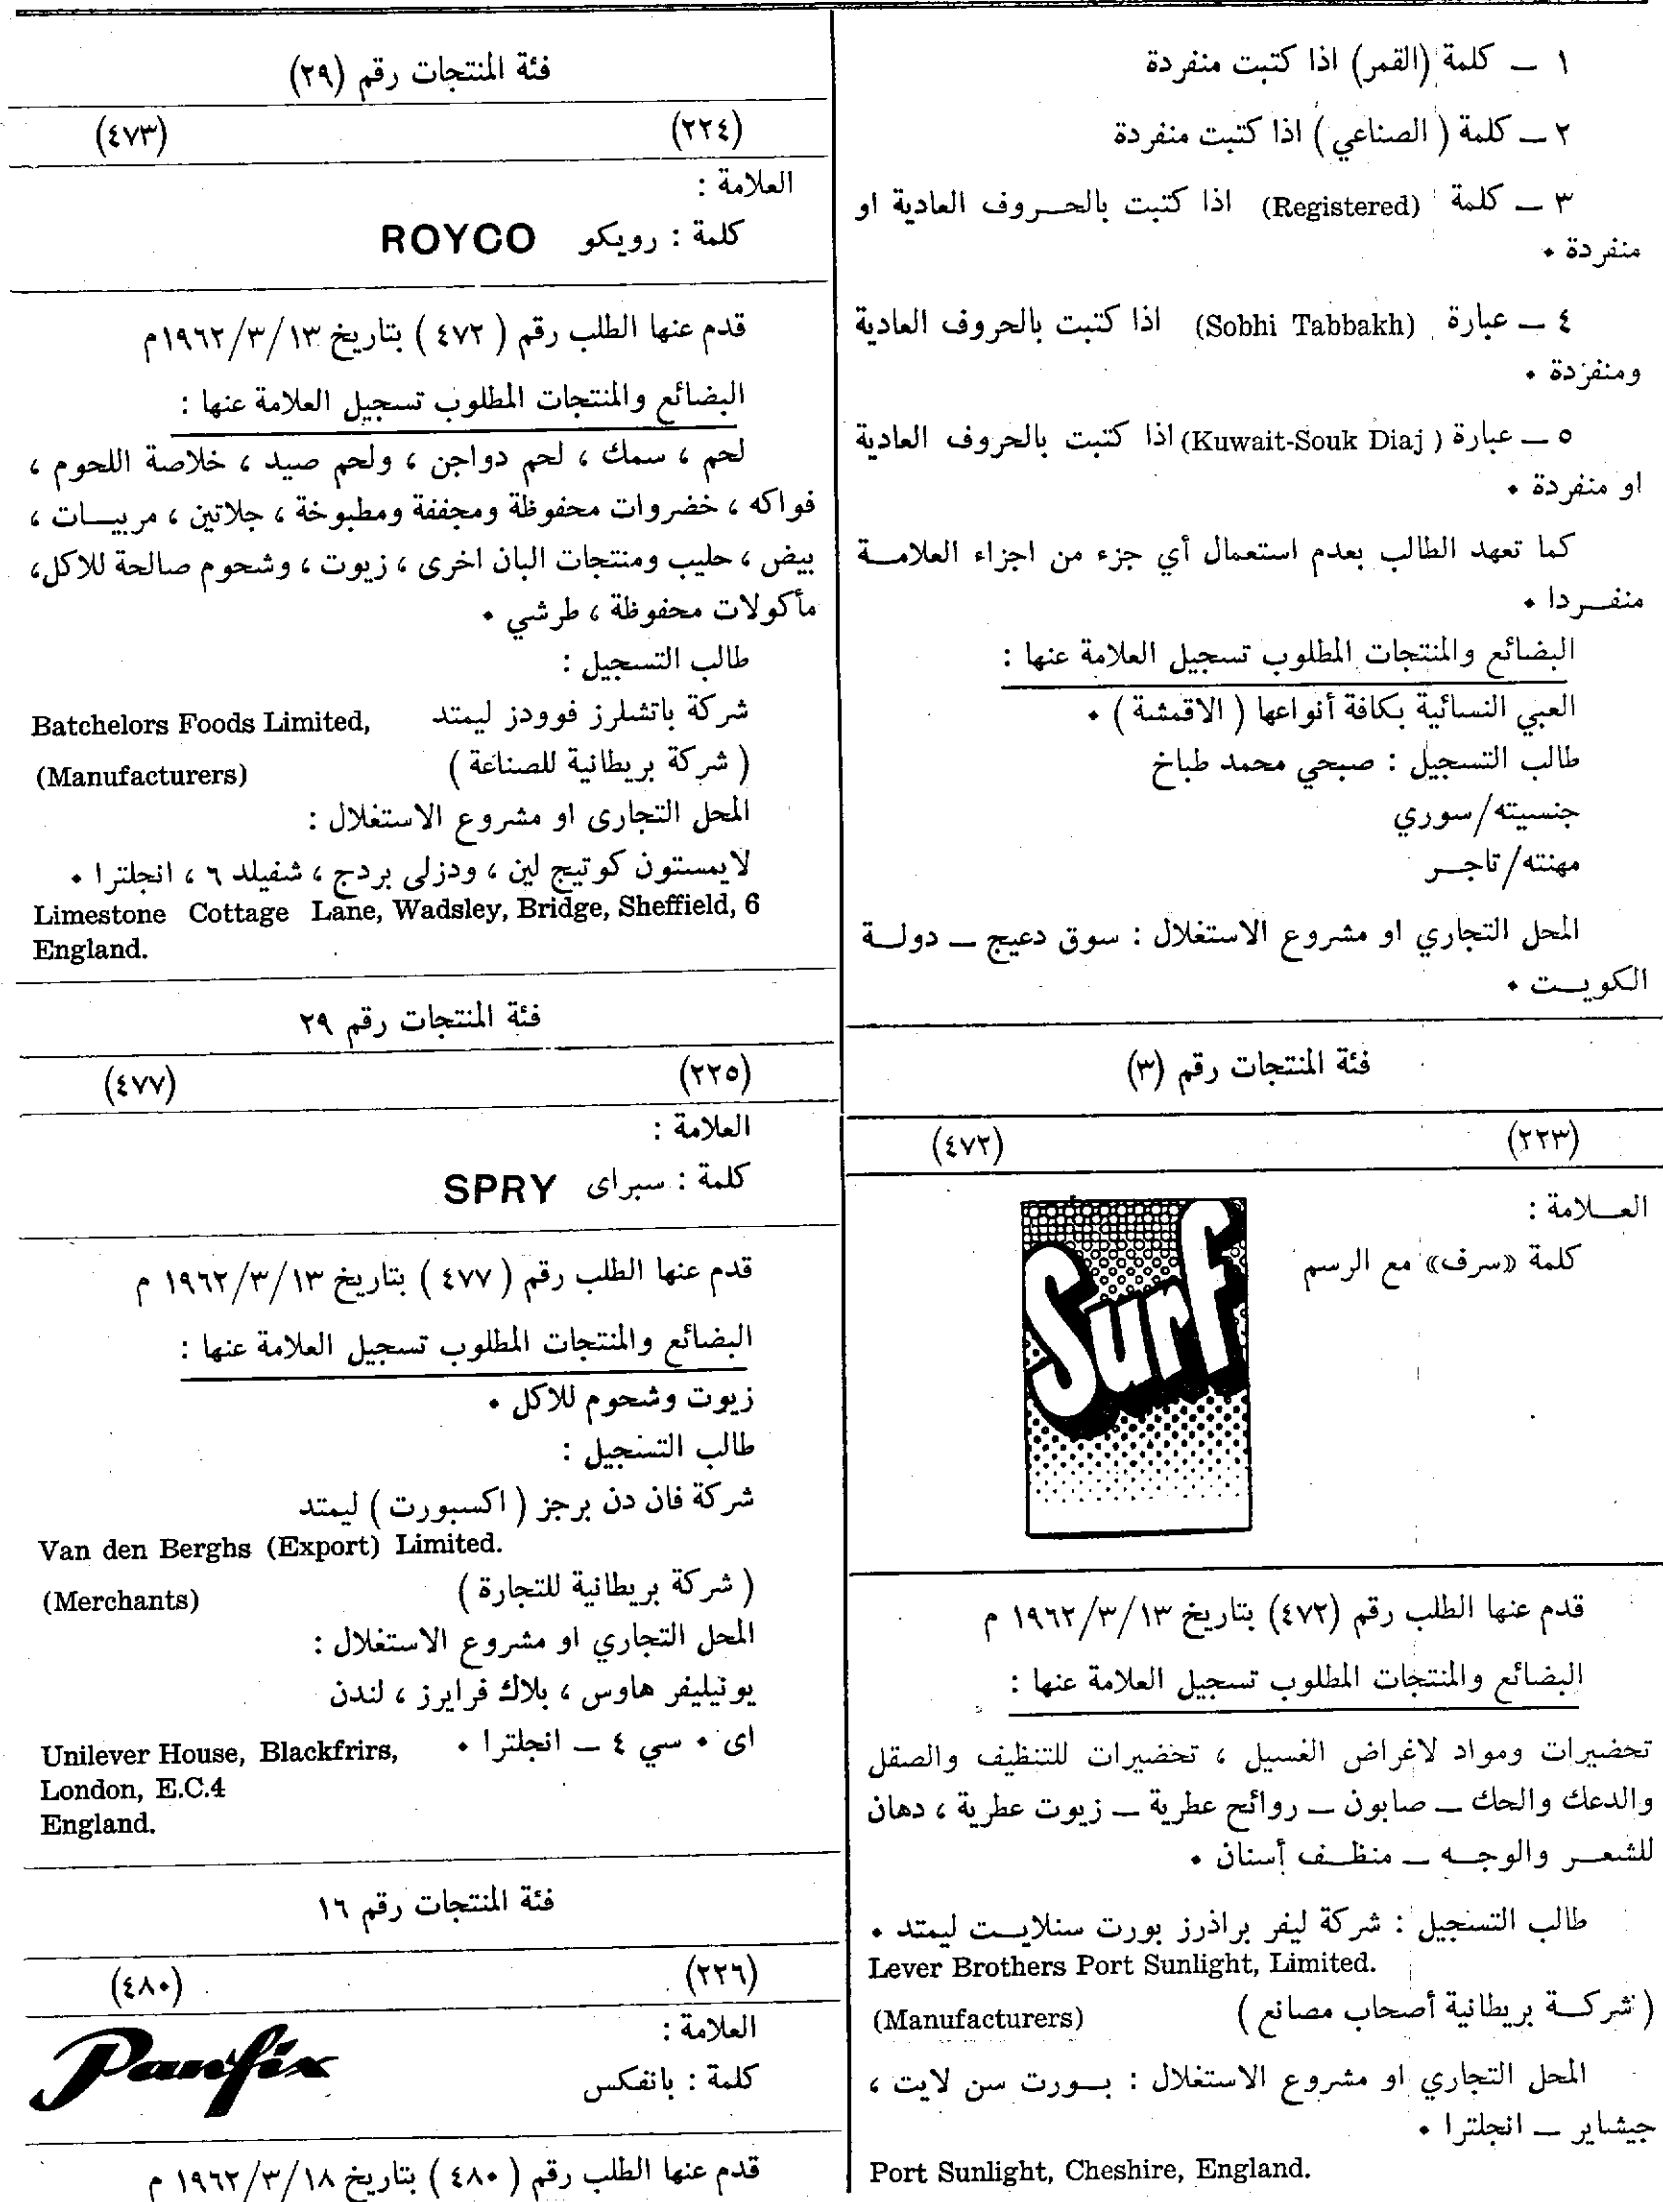 ١ ــ كلمة (القمر) اذا كتبت منفردة
٢ ــ كلمة ( الصناعي ) اذا كتبت منفردة
٣ ــ كلمة (Registered) اذا كتبت بالحـــروف العادية او
منفردة ٠
٤ ــ عبارة (Sobhi Tabbakh) اذا كتبت بالحروف العادية
ومنفردة ٠
٥ ــ عبارة ( Kuwait-Souk Diaj) اذا كتبت بالحروف العادية
او منفردة ٠
كما تعهد الطالب بعدم استعمال أي جزء من اجزاء العلامــة
منفــردا ٠
البضائع والمنتجات المطلوب تسجيل العلامة عنها :
العبي النسائية بكافة أنواعها ( الاقمشة ) ٠
طالب التسجيل : صبحي محمد طباخ
جنسيته/سوري
مهنته/تاجــر
المحل التجاري او مشروع الاستغلال : سوق دعيج ــ دولــة
الكويــت ٠
فئة المنتجات رقم (٣)
(٢٢٣) (٤٧٢)
العــلامة :
كلمة «سرف» مع الرسم
Surf
قدم عنها الطلب رقم (٤٧٢) بتاريخ ١٩٦٢/٣/١٣ م
البضائع والمنتجات المطلوب تسجيل العلامة عنها :
تحضيرات ومواد لاغراض الغسيل ، تحضيرات للتنظيف والصقل
والدعك والحك ــ صابون ــ روائح عطرية ــ زيوت عطرية ، دهان
للشعــر والوجــه ــ منظــف أسنان ٠
طالب التسجيل : شركة ليفر براذرز بورت سنلايــت ليمتد ٠
Lever Brothers Port Sunlight, Limited.
( شركــة بريطانية أصحاب مصانع ) (Manufacturers)
المحل التجاري او مشروع الاستغلال : بــورت سن لايت ،
جيشاير ــ انجلترا ٠
Port Sunlight, Cheshire, England.
فئة المنتجات رقم (٢٩)
(٢٢٤) (٤٧٣)
العلامة :
كلمة : رويكو ROYCO
قدم عنها الطلب رقم ( ٤٧٢ ) بتاريخ ١٩٦٢/٣/١٣م
البضائع والمنتجات المطلوب تسجيل العلامة عنها :
لحم ، سمك ، لحم دواجن ، ولحم صيد ، خلاصة اللحوم ،
فواكه ، خضروات محفوظة ومجففة ومطبوخة ، جلاتين ، مربيــات ،
بيض ، حليب ومنتجات البان اخرى ، زيوت ، وشحوم صالحة للاكل،
مأكولات محفوظة ، طرشي ٠
طالب التسجيل :
شركة باتشلرز فوودز ليمتد Batchelors Foods Limited,
( شركة بريطانية للصناعة ) (Manufacturers)
المحل التجارى او مشروع الاستغلال :
لايمستون كوتيج لين ، ودزلى بردج ، شفيلد ٦ ، انجلترا ٠
Limestone Cottage Lane, Wadsley, Bridge, Sheffield, 6
England.
فئة المنتجات رقم ٢٩
(٢٢٥) (٤٧٧)
العلامة :
كلمة : سبراى SPRY
قدم عنها الطلب رقم ( ٤٧٧ ) بتاريخ ١٩٦٢/٣/١٣ م
البضائع والمنتجات المطلوب تسجيل العلامة عنها :
زيوت وشحوم للاكل ٠
طالب التسجيل :
شركة فان دن برجز ( اكسبورت ) ليمتد
Van den Berghs (Export) Limited.
( شركة بريطانية للتجارة ) (Merchants)
المحل التجاري او مشروع الاستغلال :
يونيليفر هاوس ، بلاك فرايرز ، لندن
اى ٠ سي ٤ ــ انجلترا ٠ Unilever House, Blackfrirs,
London, E.C.4
England.
فئة المنتجات رقم ١٦
(٢٢٦) (٤٨٠)
العلامة :
كلمة : بانفكس Panfix
قدم عنها الطلب رقم ( ٤٨٠ ) بتاريخ ١٩٦٢/٣/١٨ م